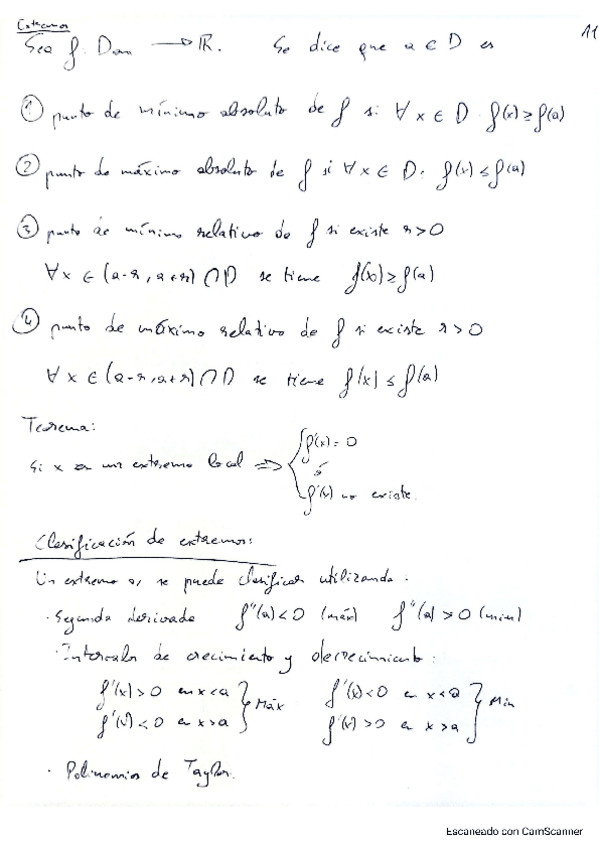 Extremos
11
Sea f: Dom → ℝ. Se dice que a ∈ D es
① punto de mínimo absoluto de f si ∀x ∈ D f(x) ≥ f(a)
② punto de máximo absoluto de f si ∀x ∈ D. f(x) ≤ f(a)
③ punto de mínimo relativo de f si existe r > 0
∀x ∈ (a-r, a+r) ∩ D se tiene f(x) ≥ f(a)
④ punto de máximo relativo de f si existe r > 0
∀x ∈ (a-r, a+r) ∩ D se tiene f(x) ≤ f(a)
Teorema:
f'(x) = 0
Si x es un extremo local ⇒ { ó
f'(x) no existe.
Clasificación de extremos:
Un extremo a, se puede clasificar utilizando:
· Segunda derivada f''(a) < 0 (máx) f''(a) > 0 (min)
· Intervalos de crecimiento y decrecimiento:
f'(x) > 0 en x < a } Máx f'(x) < 0 en x < a } Min
f'(x) < 0 en x > a f'(x) > 0 en x > a
· Polinomios de Taylor.
Escaneado con CamScanner